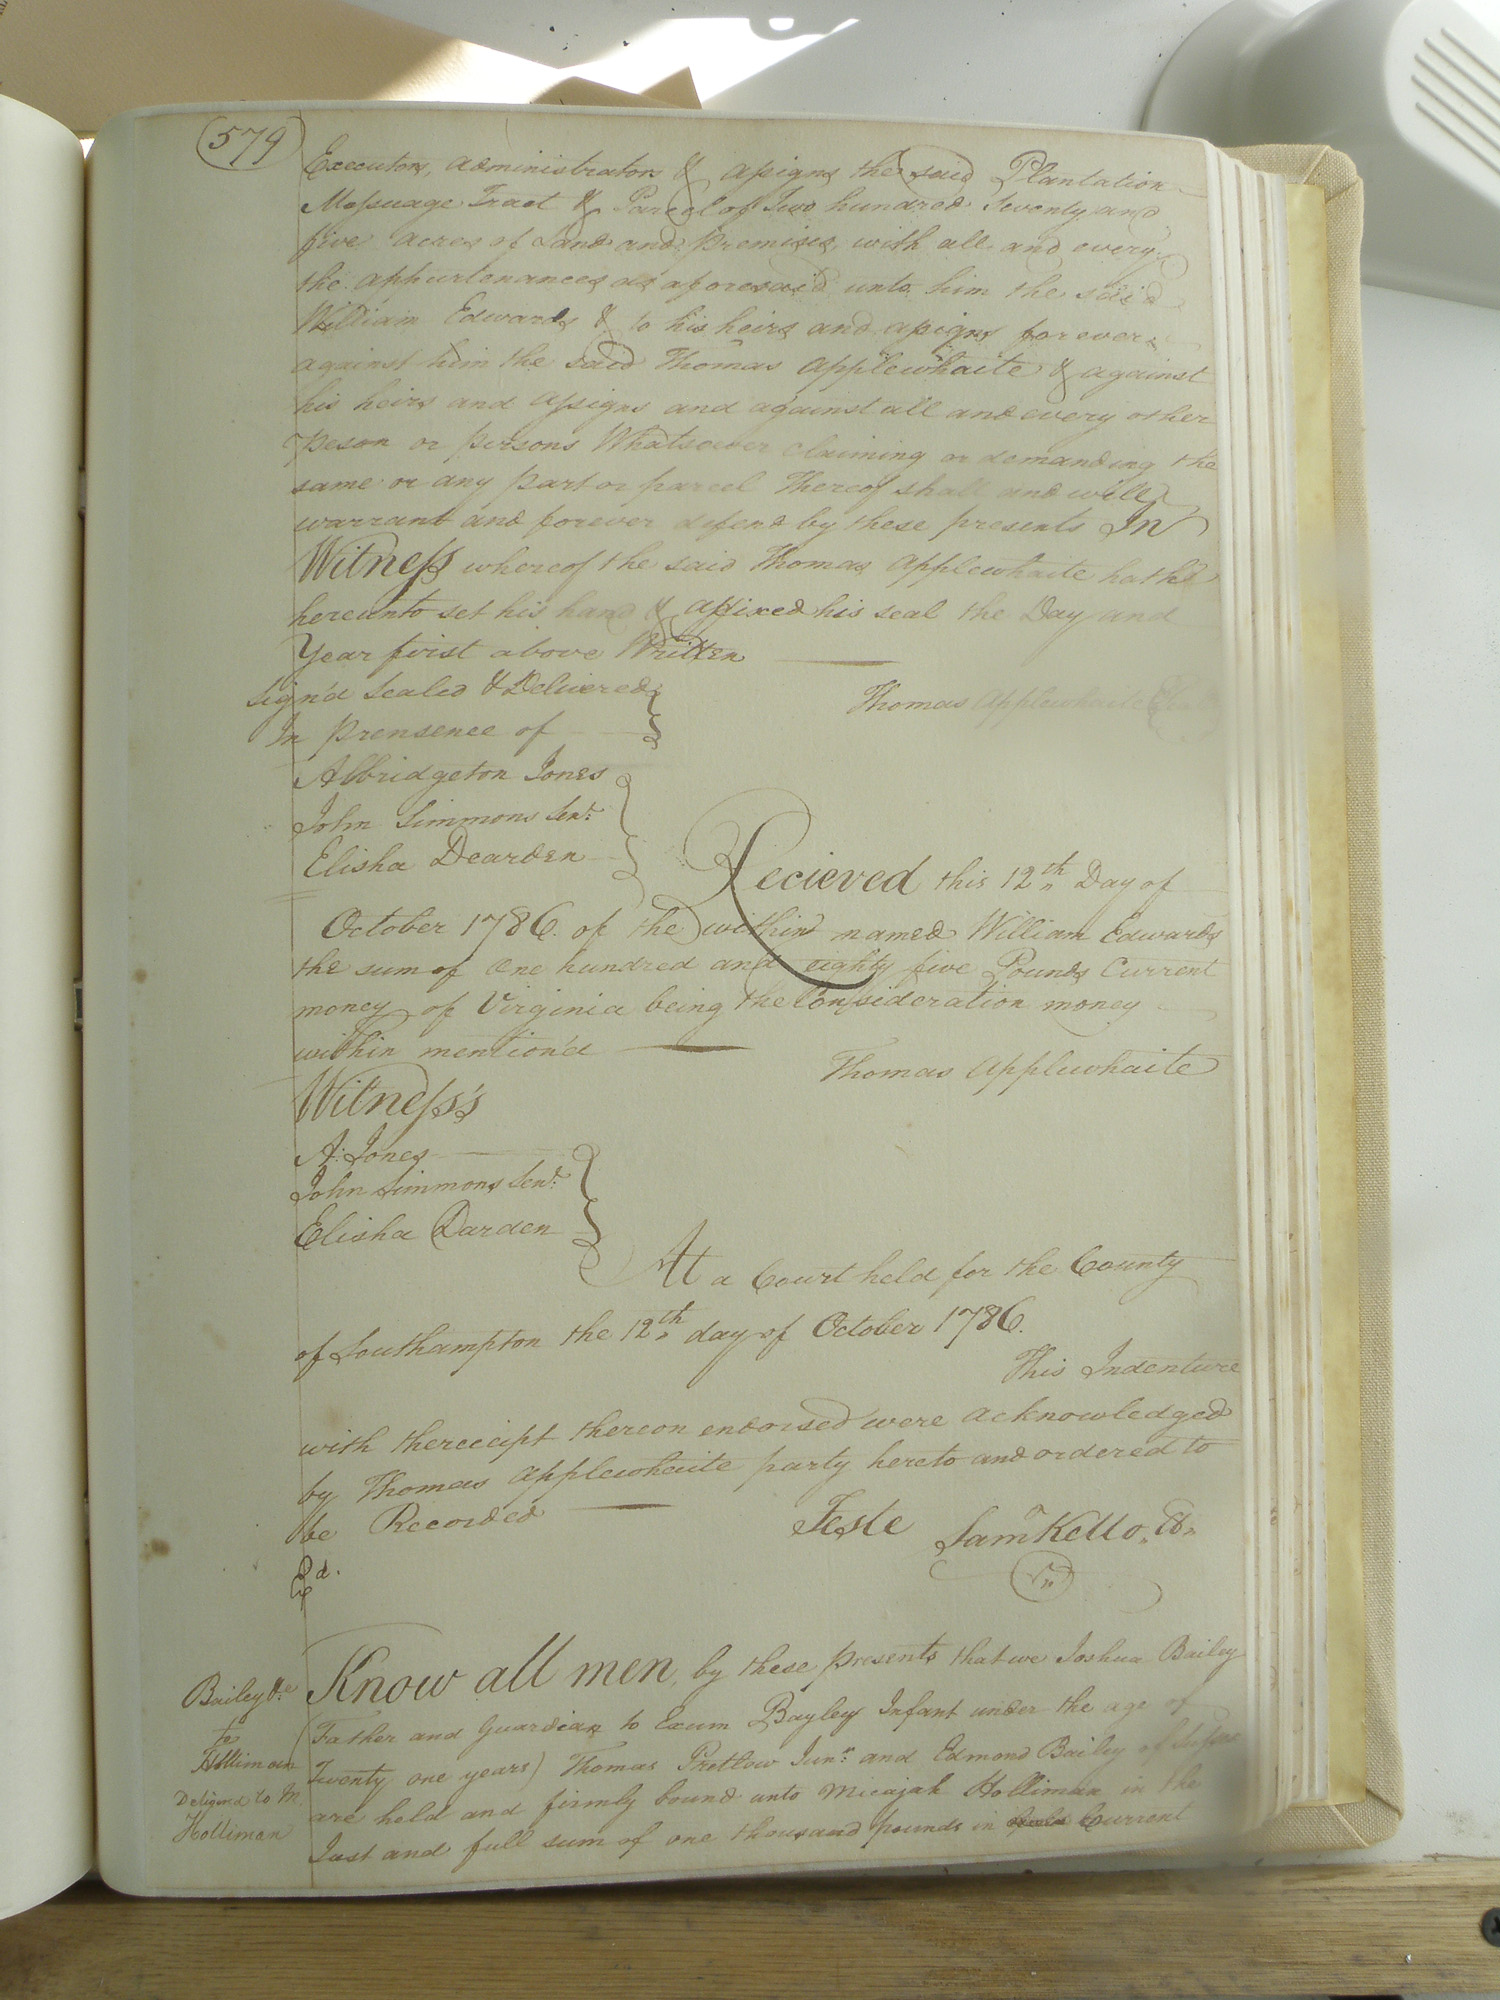 579
Executors, administrators & assigns the said Plantation
Messuage Tract & Parcel of Two hundred Seventy and
five acres of Land and premises with all and every
the appurtenances as aforesaid unto him the said
William Edwards & to his heirs and assigns forever
against him the said Thomas Applewhaite & against
his heirs and assigns and against all and every other
peson or persons Whatsoever claiming or demanding the
same or any part or parcel Thereof shall and will
warrant and forever defend by these presents In
Witness whereof the said Thomas Applewhaite hath
hereunto set his hand & affixed his seal the Day and
Year first above Written
Sign'd Sealed & Delivered
In prensence of
Thomas Applewhaite
Albridgeton Jones
John Simmons Senr.
Elisha Dearden
Recieved this 12th Day of
October 1786. of the within named William Edwards
the sum of One hundred and eighty five Pounds Current
money of Virginia being the Consideration money
within mention'd
Thomas Applewhaite
Witness's
A: Jones
John Simmons Senr.
Elisha Darden
At a Court held for the County
of Southampton the 12th day of October 1786.
This Indenture
with thereceipt thereon endorsed were acknowledged
by Thomas Applewhaite party hereto and ordered to
be Recorded
Teste Saml Kello
Exd.
Know all men, by these presents that we Joshua Bailey
(Father and Guardian to Exum Bayley Infant under the age of
Twenty one years) Thomas Pretlow Junr. and Edmond Bailey of Sussex
are held and firmly bound unto Micajah Holliman in the
Just and full sum of one thousand pounds in Current
Bailey &c
to
Holliman
Deliverd to M.
Holliman